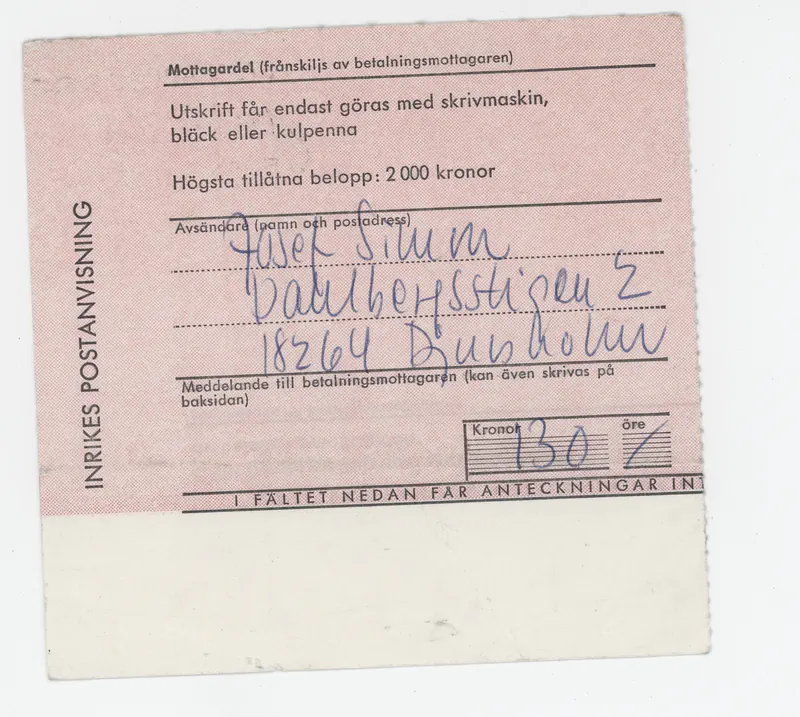 Mottagardel (frånskiljs av betalningsmottagaren)
Utskrift får endast göras med skrivmaskin,
bläck eller kulpenna
Högsta tillåtna belopp: 2 000 kronor
INRIKES POSTANVISNING
Avsändare (namn och postadress)
Josef Simm
Dahlbergsstigen 2
18264 Djursholm
Meddelande till betalningsmottagaren (kan även skrivas på
baksidan)
Kronor öre
130 /
I FÄLTET NEDAN FÅR ANTECKNINGAR INT